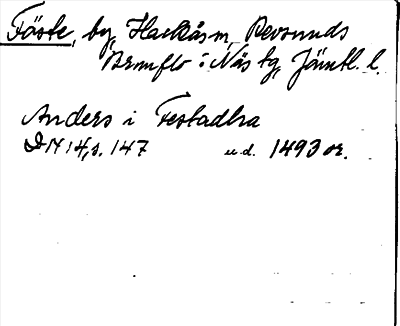 Fäste, by, Hackås sn, Revsunds
Brunflo i Näs tg, Jämtl. l.
Anders i Festadha
DN 14, s. 147 u.d. 1493 or.